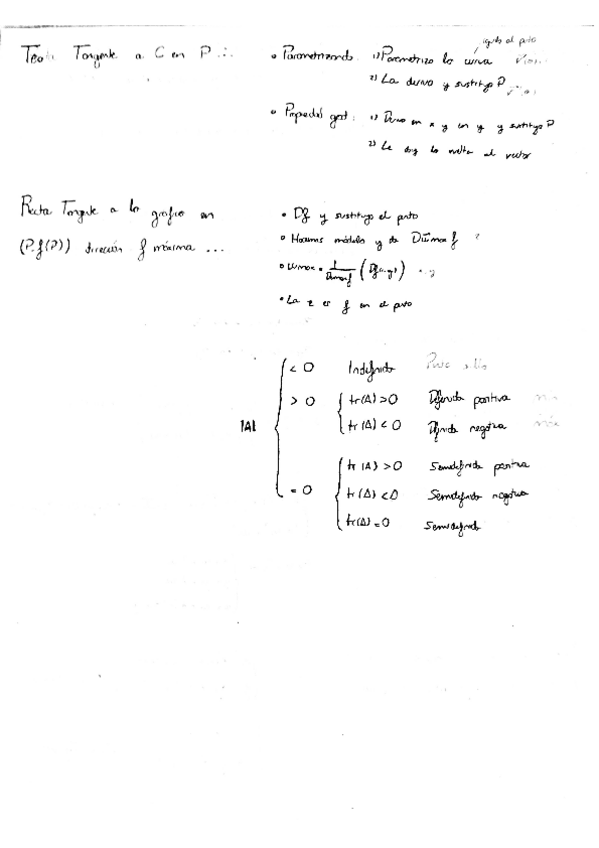 igualo al punto
Tangente a C en P
• Parametrizando: 1) Parametrizo la curva
2) La derivo y sustituyo P
• Propiedad grad: 1) Derivo en x y en y y sustituyo P
2) Le doy la vuelta al vector
Recta Tangente a la grafica en
(P, f(P)) dirección f máxima ...
• Df y sustituyo el punto
• Hacemos módulo y da
•
• La z es f en el punto
|A|
< 0 Indefinida
> 0 tr(A) > 0 Definida positiva
tr(A) < 0 Definida negativa
= 0 tr(A) > 0 Semidefinida positiva
tr(A) < 0 Semidefinida negativa
tr(A) = 0 Semidefinida